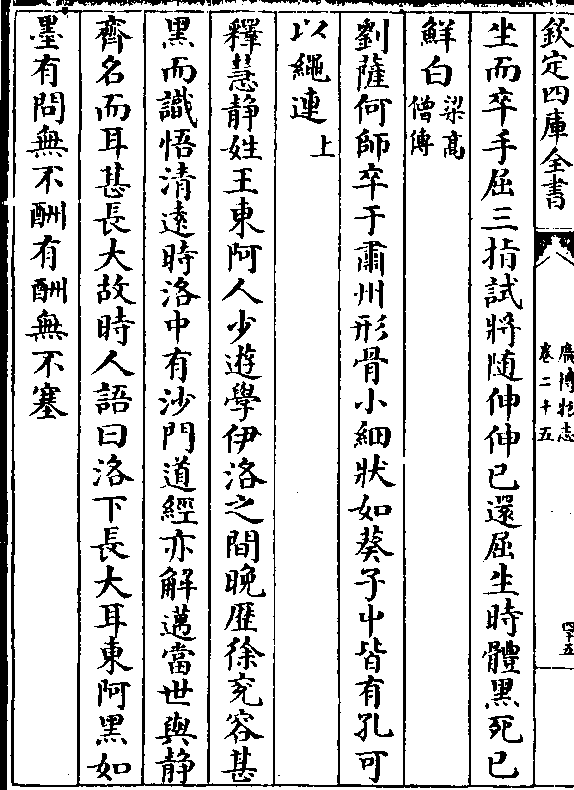 欽定四庫全書
廣博物志
卷二十五
四十五
坐而卒手屈三指試將随伸伸已還屈生時體黑死已
鮮白梁高僧傳
劉薩何師卒于肅州形骨小細狀如葵子中皆有孔可
以繩連上
釋慧静姓王東阿人少遊學伊洛之間晚歷徐兖容甚
黑而識悟清遠時洛中有沙門道經亦解邁當世與静
齊名而耳甚長大故時人語曰洛下長大耳東阿黑如
墨有問無不酬有酬無不塞